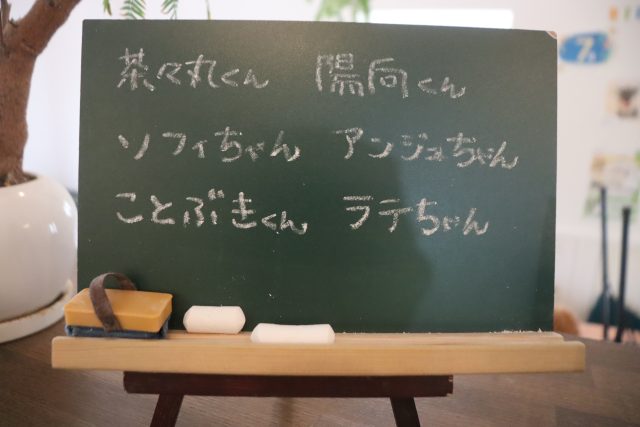 茶々丸くん 陽向くん
ソフィちゃん アンジュちゃん
ことぶきくん ラテちゃん